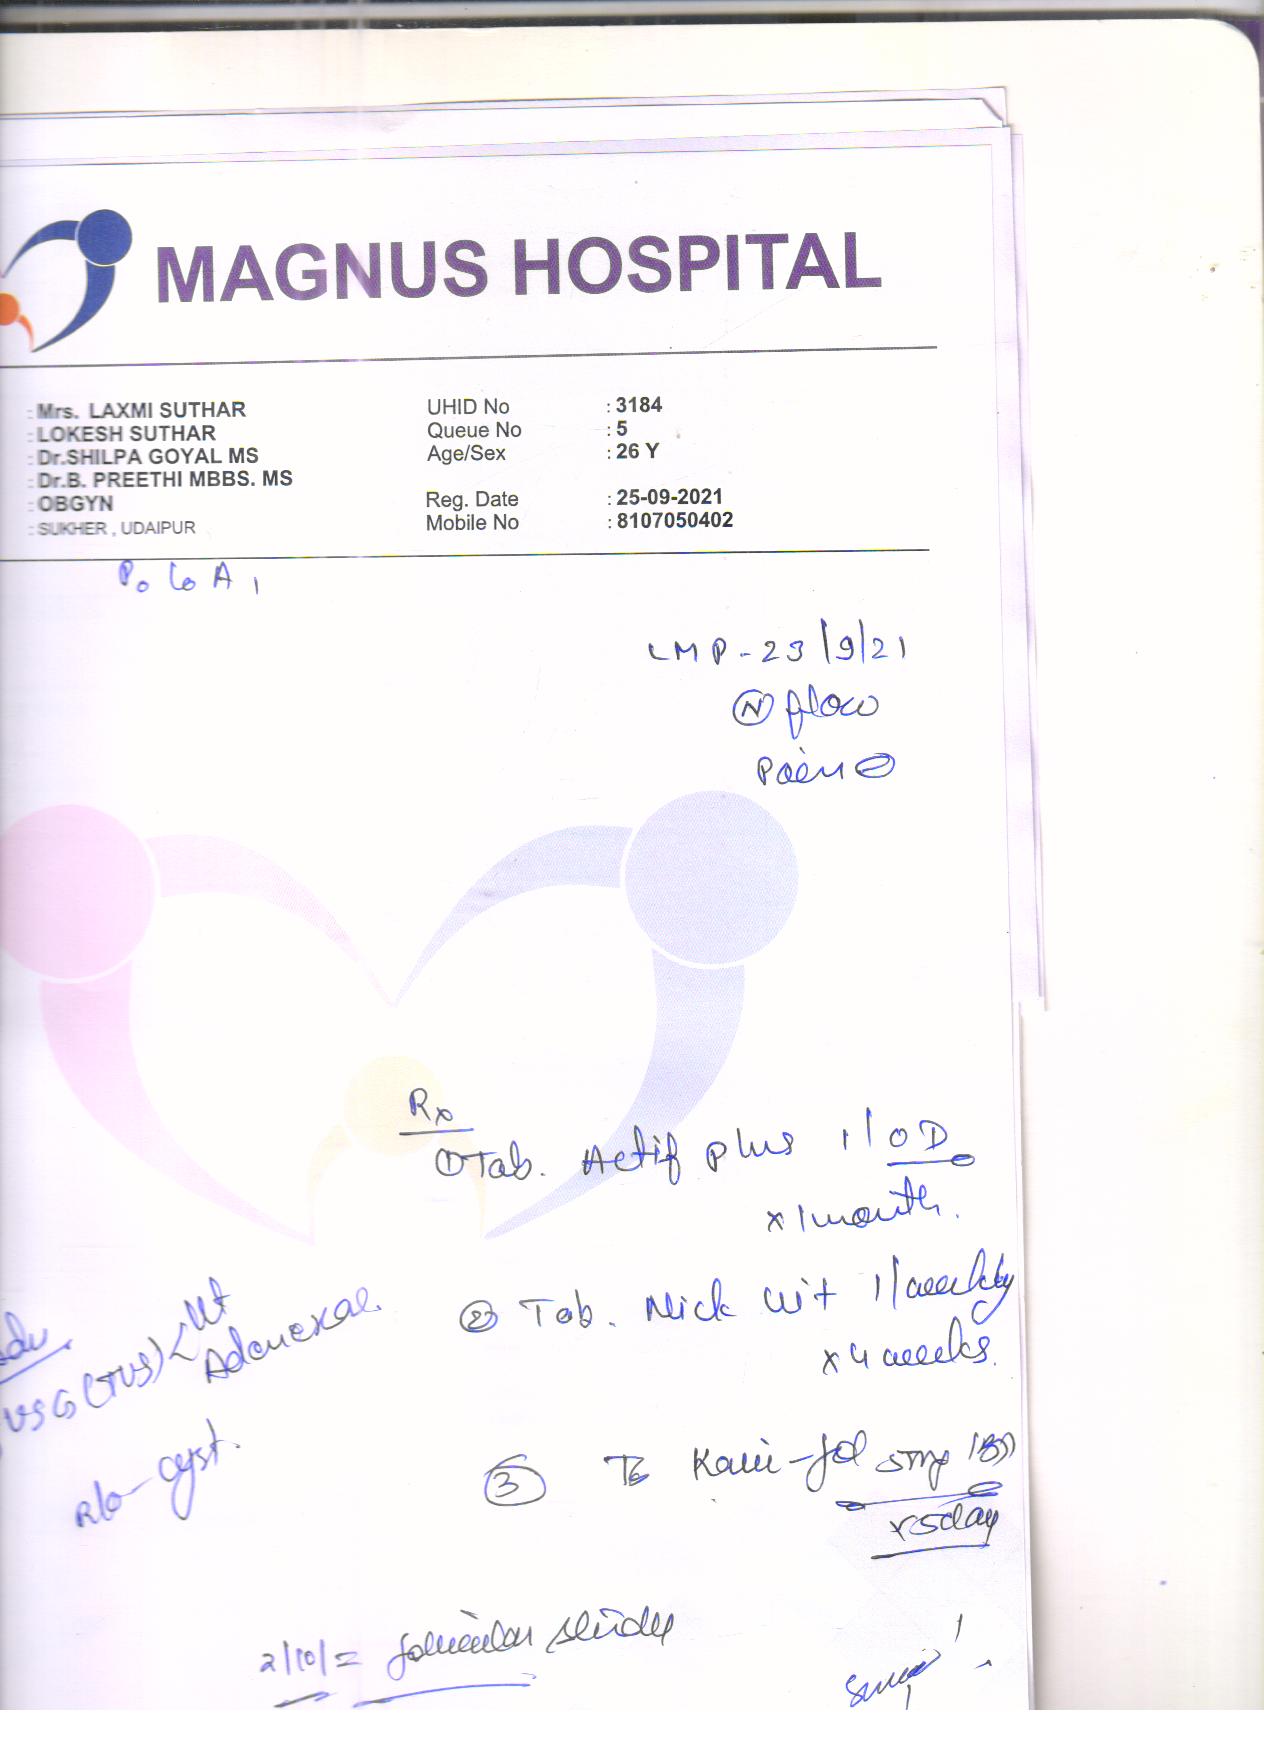 MAGNUS HOSPITAL
: Mrs. LAXMI SUTHAR
: LOKESH SUTHAR
: Dr.SHILPA GOYAL MS
: Dr.B. PREETHI MBBS. MS
: OBGYN
: SUKHER , UDAIPUR
UHID No : 3184
Queue No : 5
Age/Sex : 26 Y
Reg. Date : 25-09-2021
Mobile No : 8107050402
P0 L0 A1
LMP - 23/9/21
(N) flow
Pain ⊖
Rx
① Tab. Actif plus 1/OD
x 1 month.
② Tab. 1/weekly
x 4 weeks.
③ 5mg
x 5day
Adv.
USG (TVS) < Ut
Adenexal
R/o - cyst.
2/10/ = follicular study